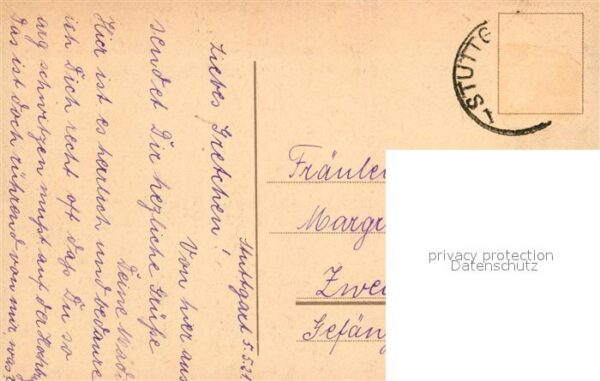 Stuttgart 5.5.21.
Liebes Gretchen!
Von hier aus
sendet Dir herzliche Grüße
Deine Mad
Hier ist es herrlich und bedaure
ich Dich recht oft daß Du so
arg schwitzen mußt auf der
Das ist doch rührend von mir, was
STUTTG
Fräulei
Margr
Zwei
Gefän
privacy protection
Datenschutz